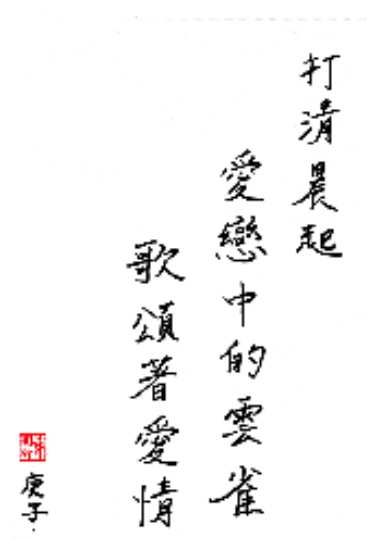 打清晨起
愛戀中的雲雀
歌頌著愛情
庚子.